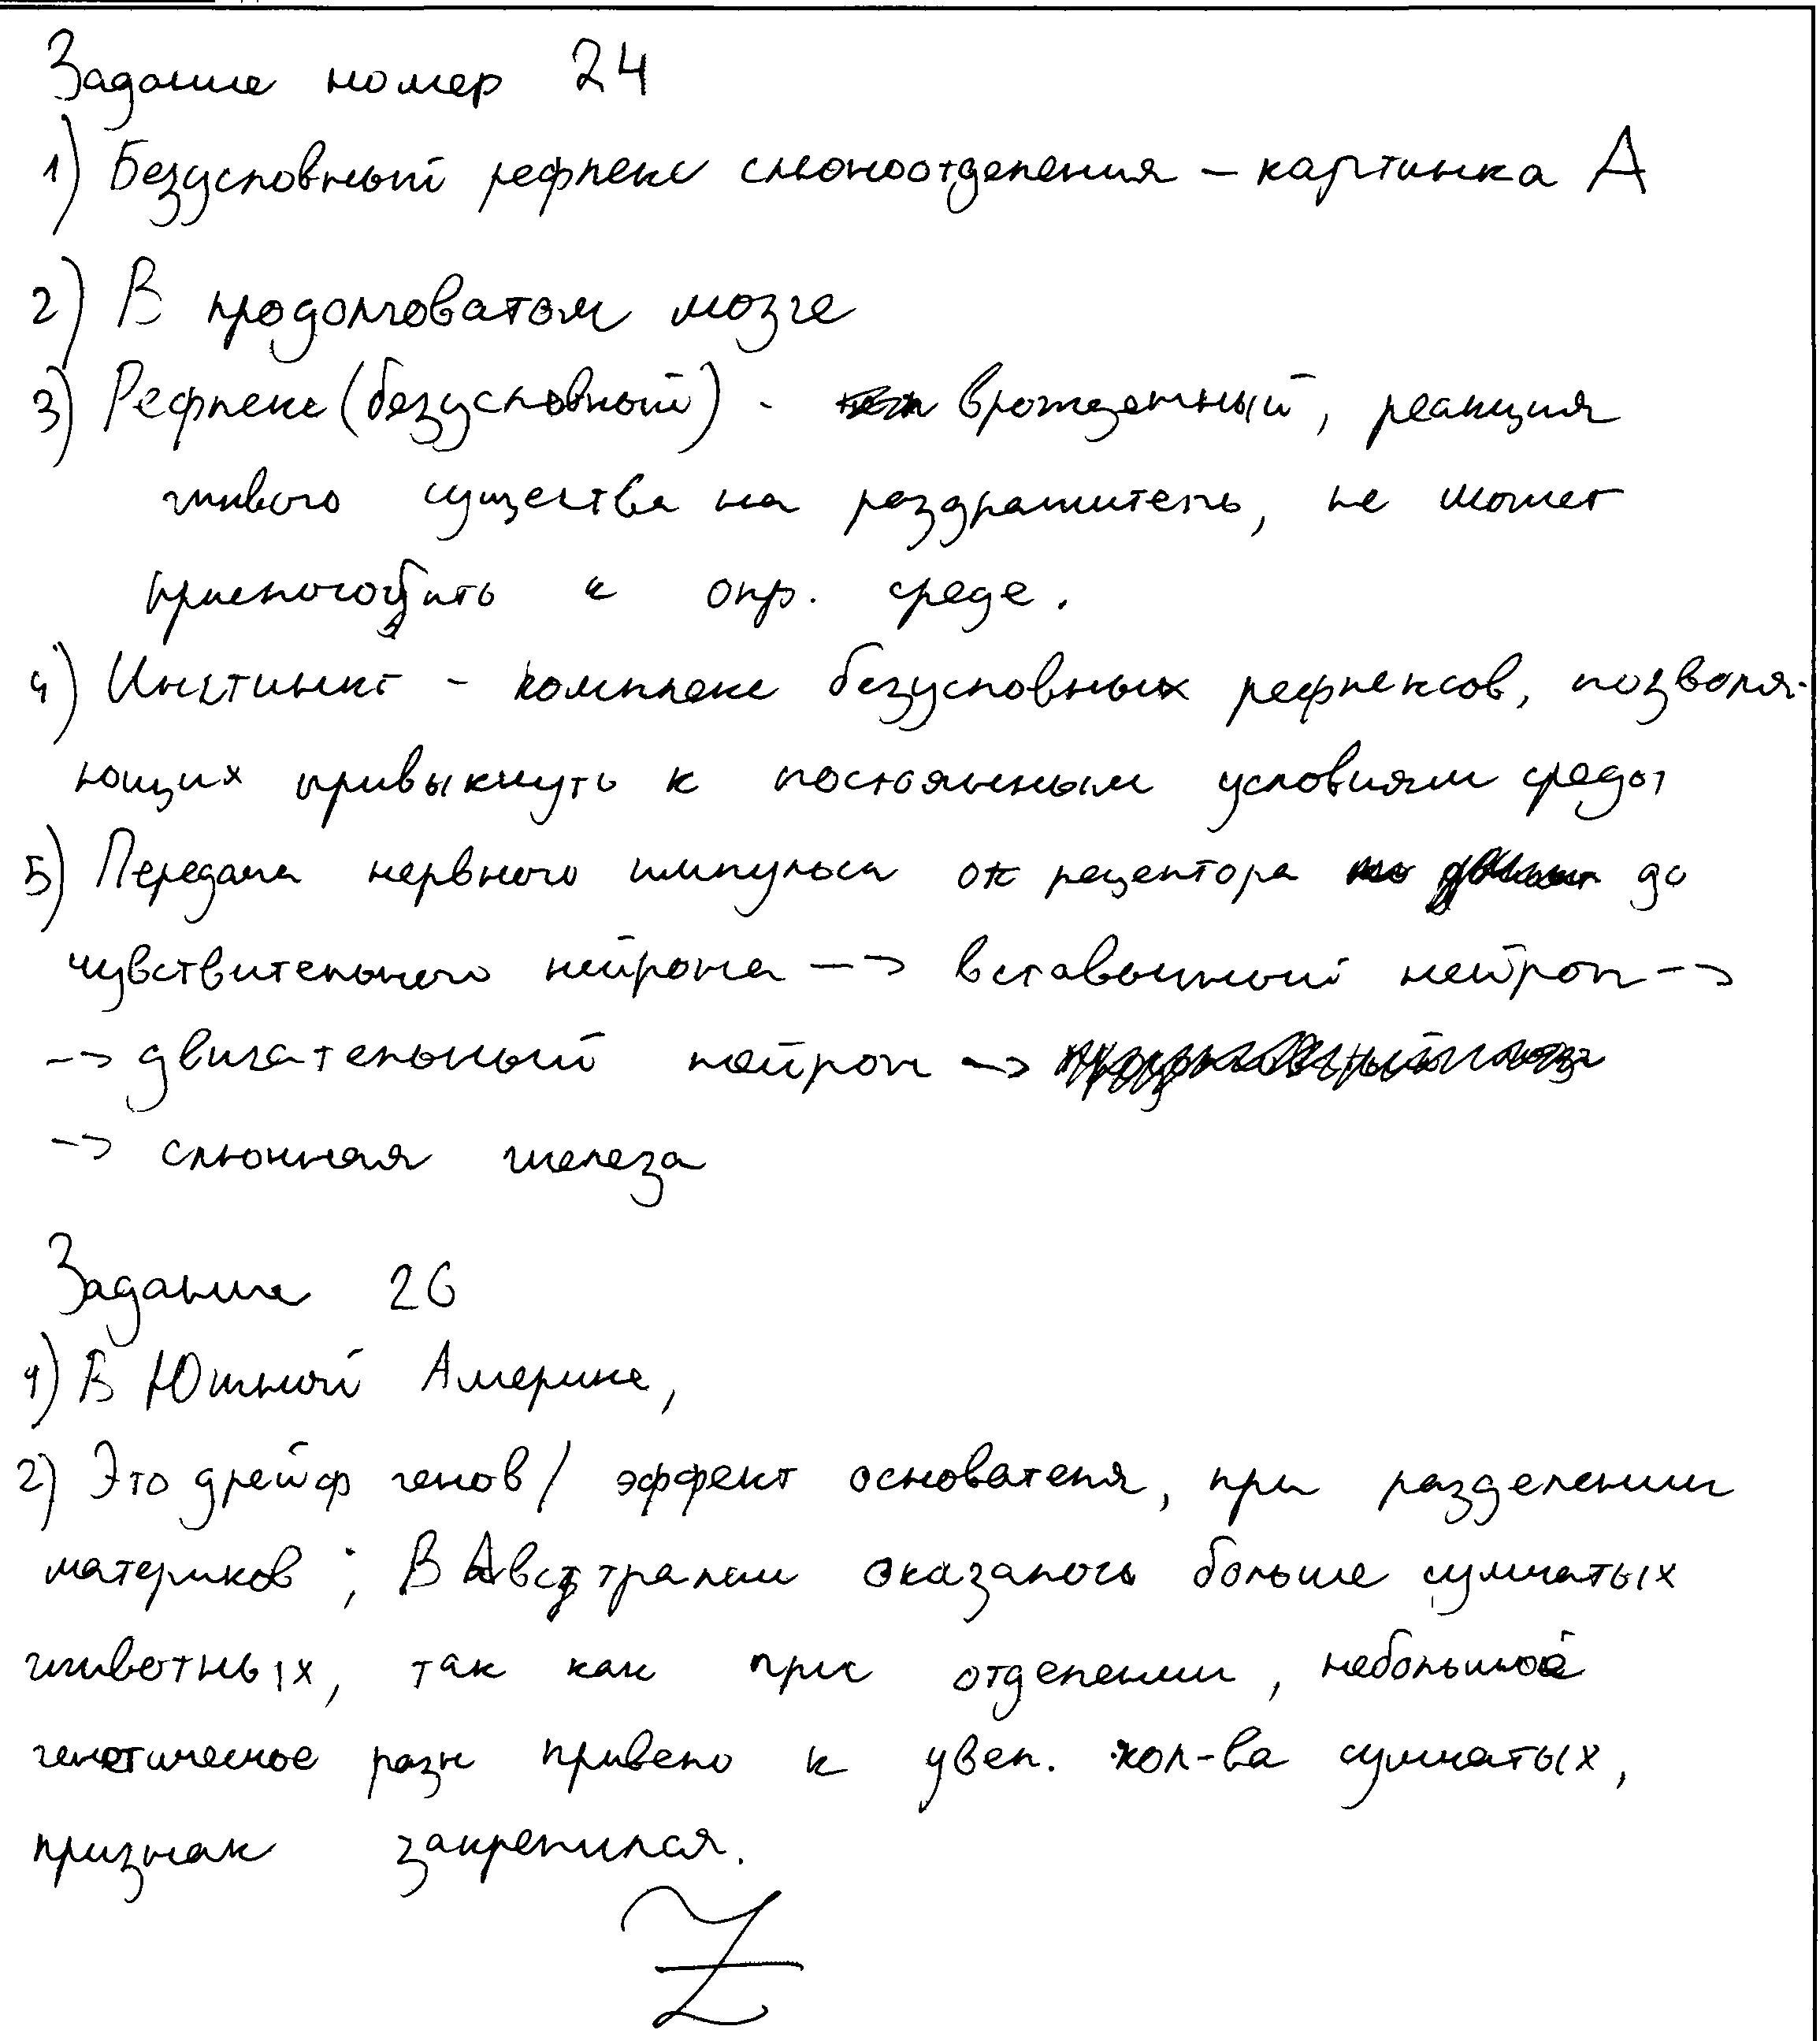 Задание номер 24
1) Безусловный рефлекс слюноотделения – картинка А
2) В продолговатом мозге
3) Рефлекс (безусловный) - врожденный, реакция
живого существа на раздражитель, не может
приспособить к опр. среде.
4) Инстинкт - комплекс безусловных рефлексов, позволя-
ющих привыкнуть к постоянным условиям среды
5) Передача нервного импульса от рецептора до
чувствительного нейрона --> вставочный нейрон -->
--> двигательный нейрон -->
--> слюнная железа
Задание 26
1) В Южной Америке,
2) Это дрейф генов / эффект основателя, при разделении
материков; В Австралии оказалось больше сумчатых
животных, так как при отделении, небольшое
генетическое разн привело к увел. кол-ва сумчатых,
признак закрепился.
Z